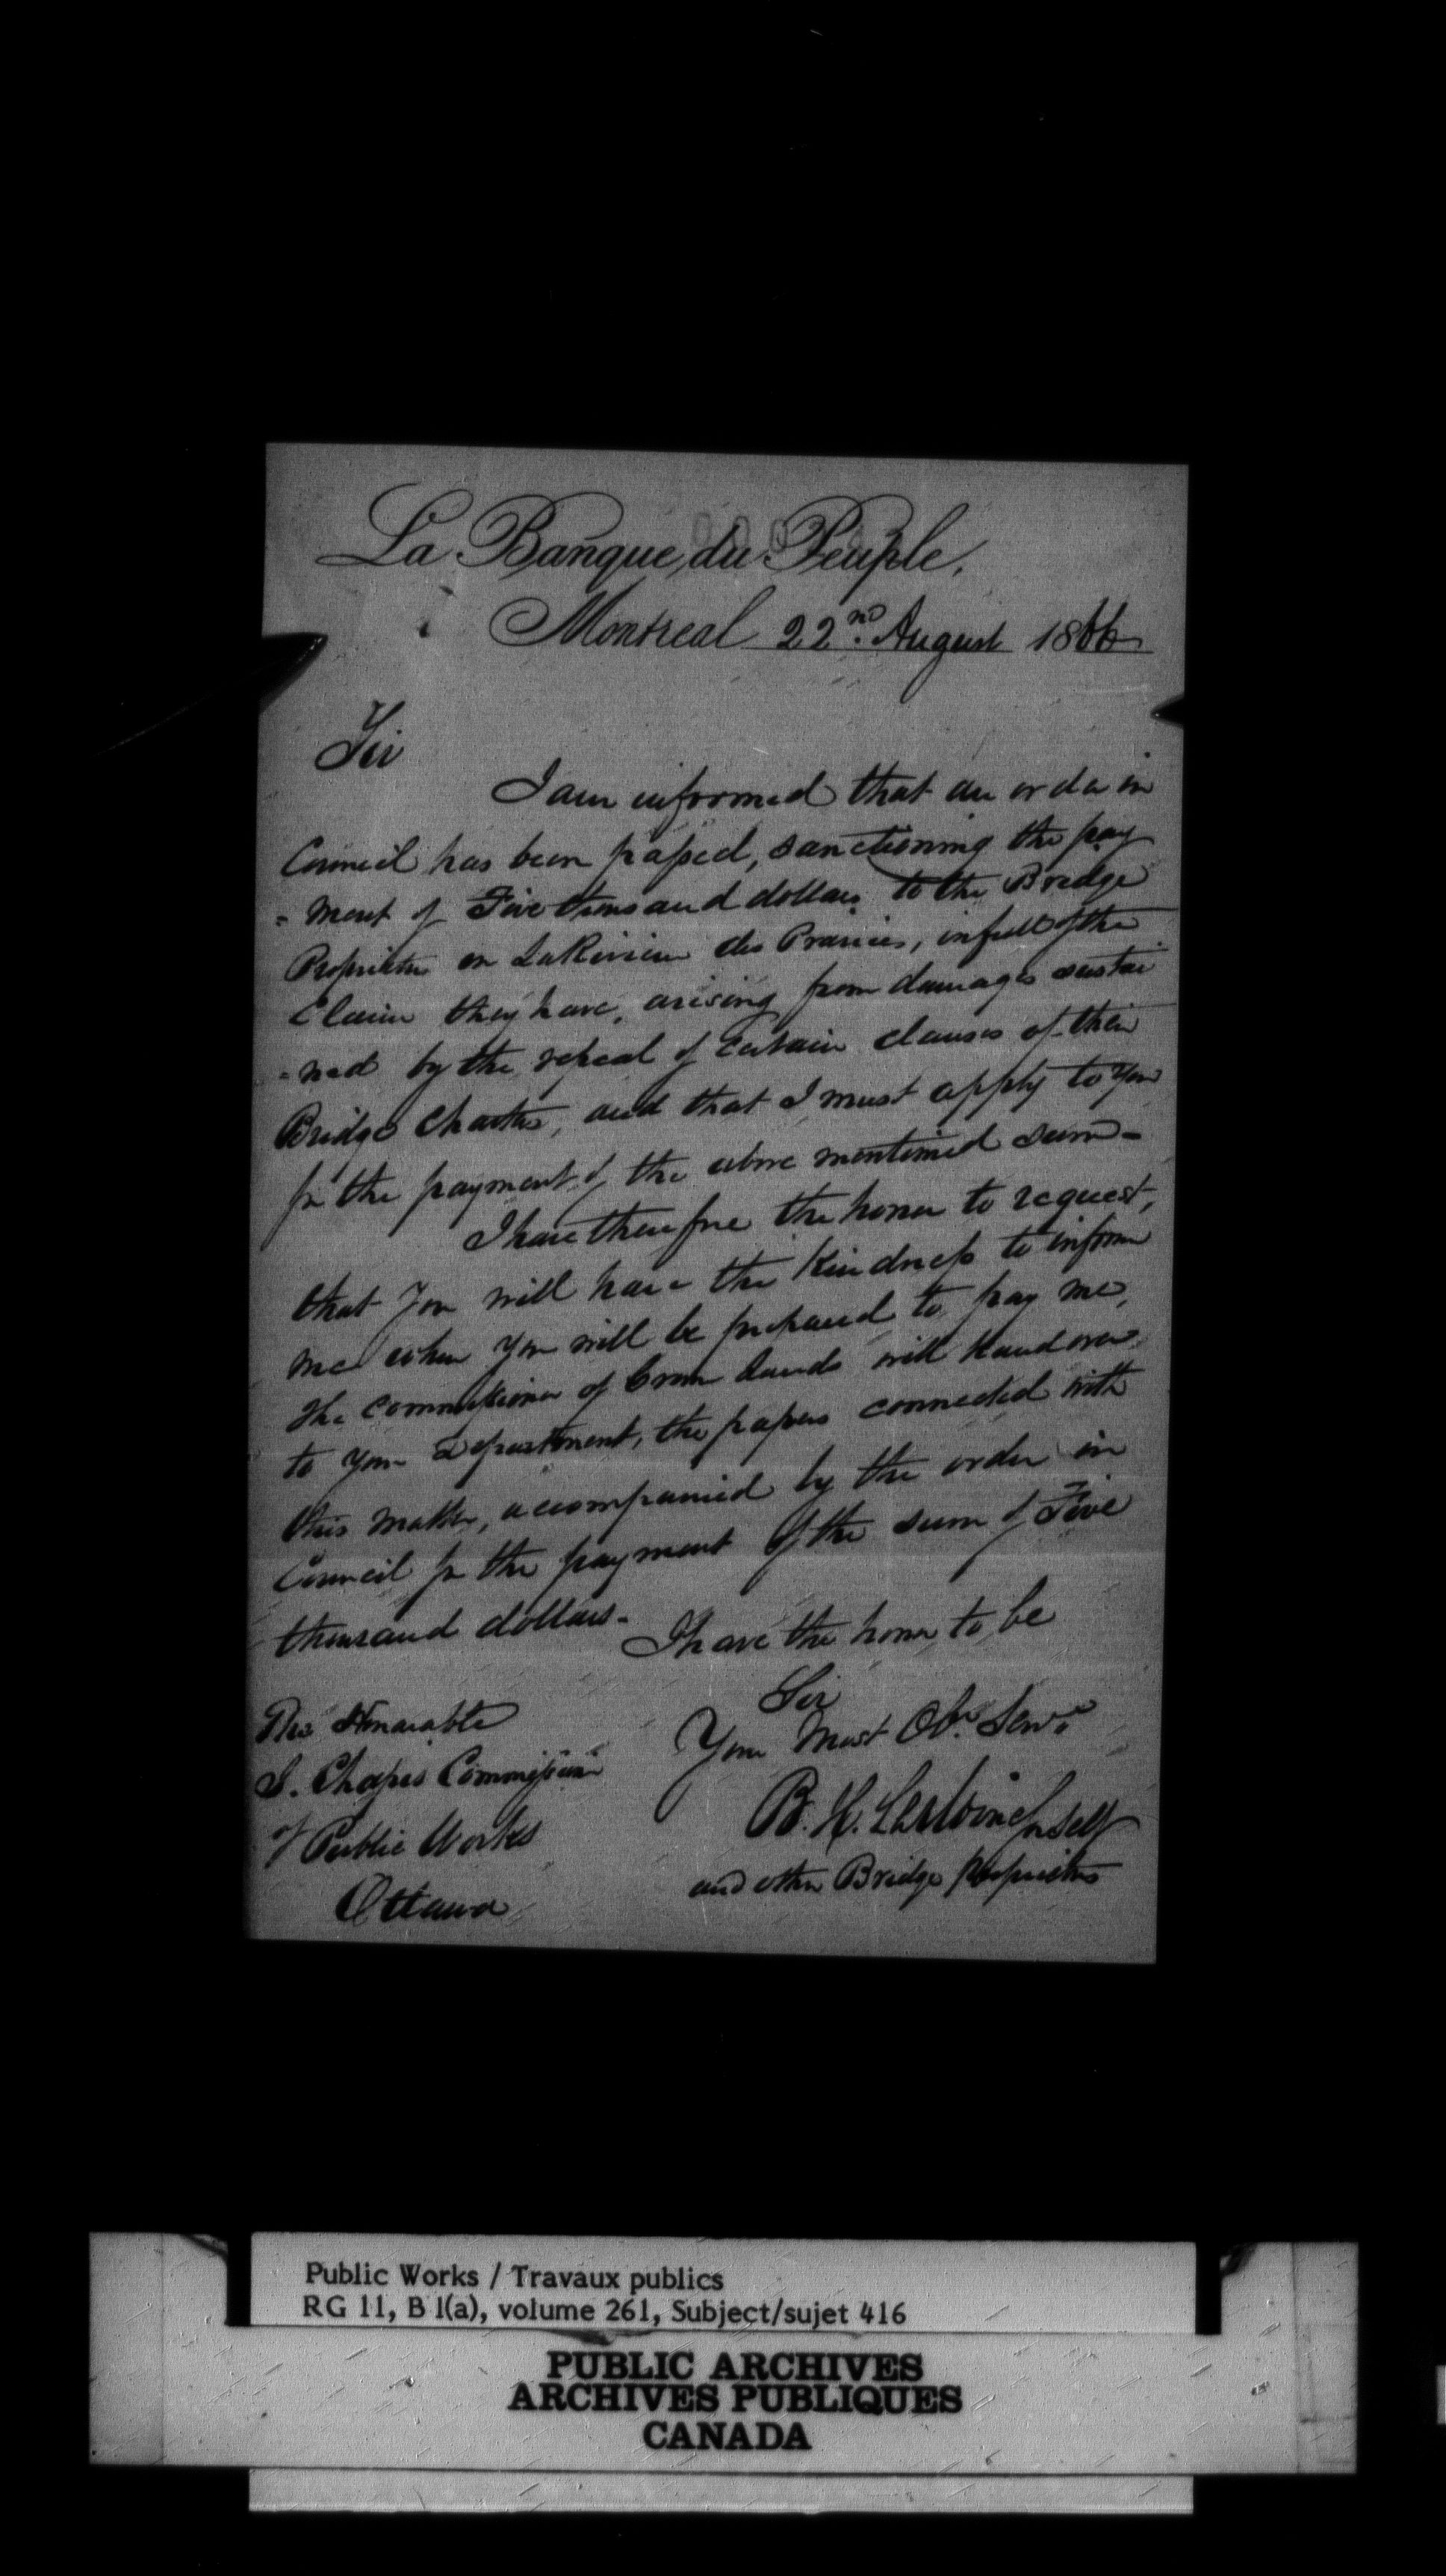 La Banque du Peuple,
Montreal 22nd August 1866
Sir
I am informed that an order in
Council has been passed, sanctioning the pay
=ment of Five thousand dollars to the Bridge
Proprietors on La Riviere des Prairies, in full of the
Claim they have, arising from damages sustai
=ned by the repeal of certain clauses of their
Bridge Charter, and that I must apply to you
for the payment of the above mentioned sum-
I have therefore the honor to request,
that you will have the kindness to inform
me when you will be prepared to pay me,
the Commissioner of Crown Lands will hand over
to your department, the papers connected with
this matter, accompanied by the order in
Council for the payment of the sum of Five
thousand dollars-
I have the honor to be
Sir
Your Most Obt Servt
B. H. for self
and other Bridge proprietors
The Honorable
Chapais Commissioner
of Public Works
Ottawa
Public Works / Travaux publics
RG 11, B 1(a), volume 261, Subject/sujet 416
PUBLIC ARCHIVES
ARCHIVES PUBLIQUES
CANADA